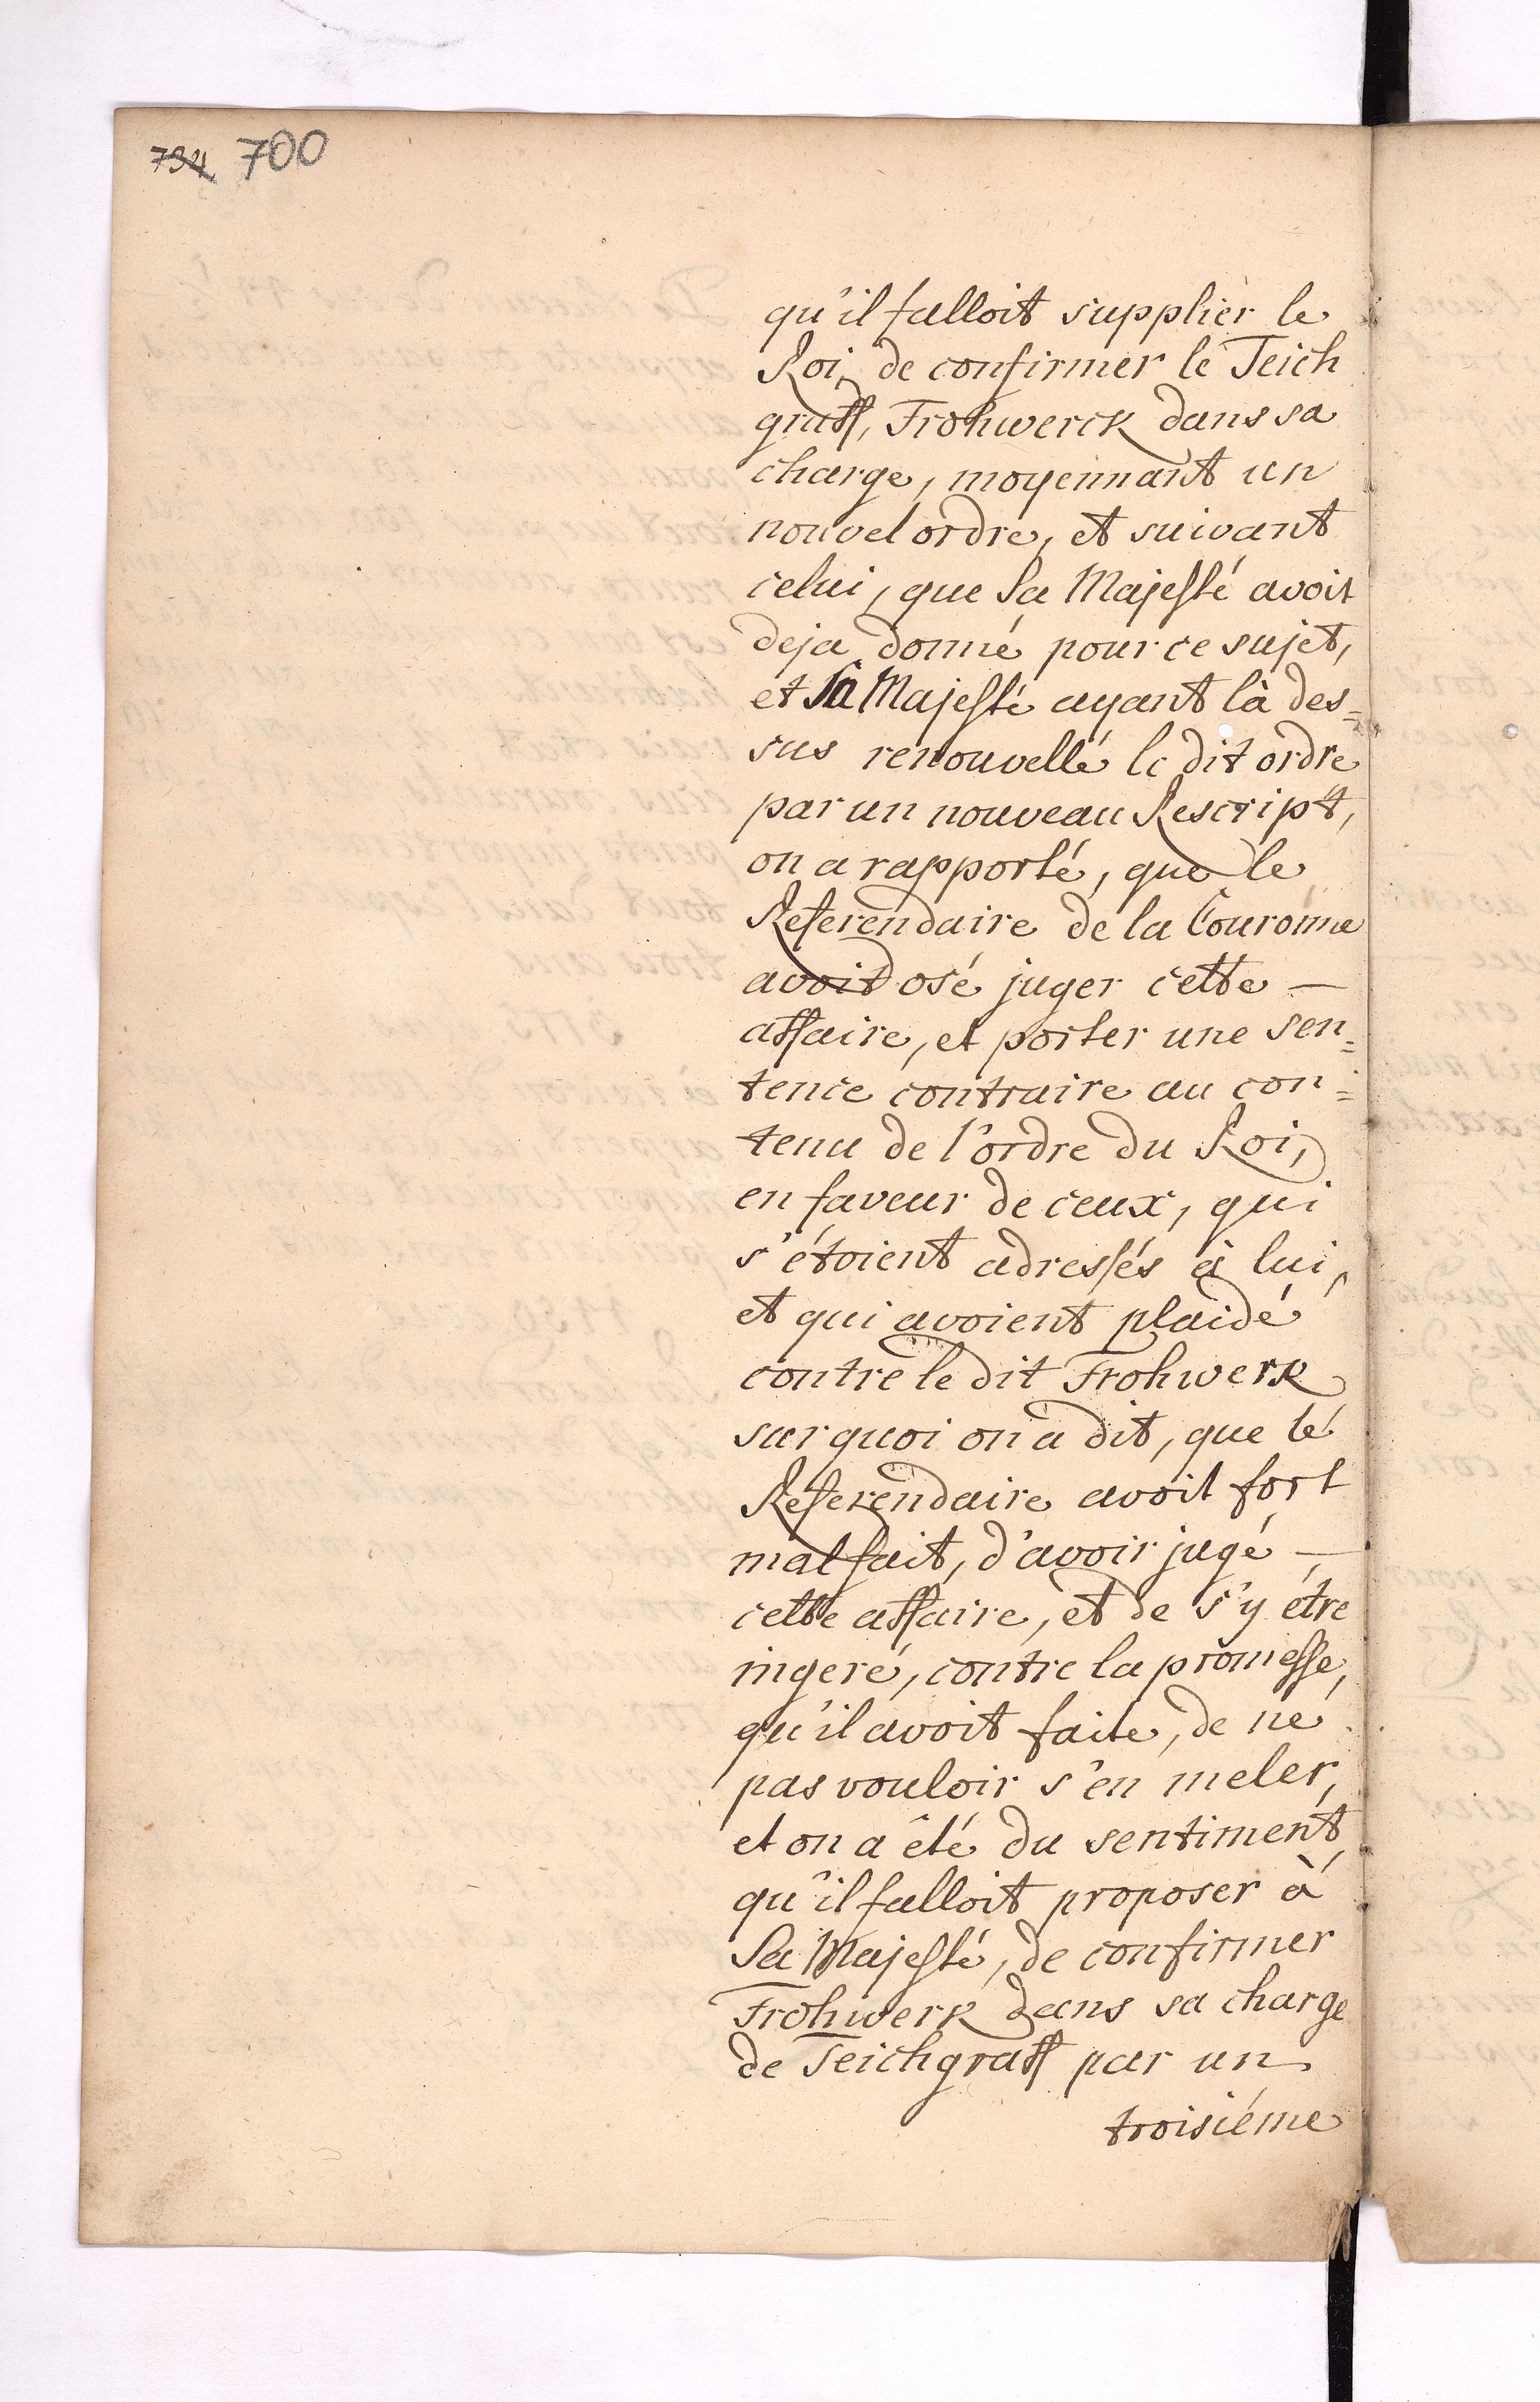 794 700
qu'il falloit supplier le
Roi, de confirmer le Teich
graff, Frohwerck dans sa
charge, moyennant un
nouvel ordre, et suivant
celui, que Sa Majesté avoit
deja donné pour ce sujet,
et Sa Majesté ayant là des=
sus renouvellé le dit ordre
par un nouveau Rescript,
on a rapporté, que le
Referendaire de la Couronne
avoit osé juger cette —
affaire, et porter une sen=
tence contraire au con=
tenu de l'ordre du Roi,
en faveur de ceux, qui
s'étoient adressés à lui,
et qui avoient plaidé
contre le dit Frohwerk
sur quoi on a dit, que le
Referendaire avoit fort
mal fait, d'avoir jugé —
cette affaire, et de s'y étre
ingeré, contre la promesse,
qu'il avoit faite, de ne
pas vouloir s'en meler,
et on a été du sentiment,
qu'il falloit proposer à
Sa Majesté, de confirmer
Frohwerk dans sa charge
de Teichgraff par un
troisiéme